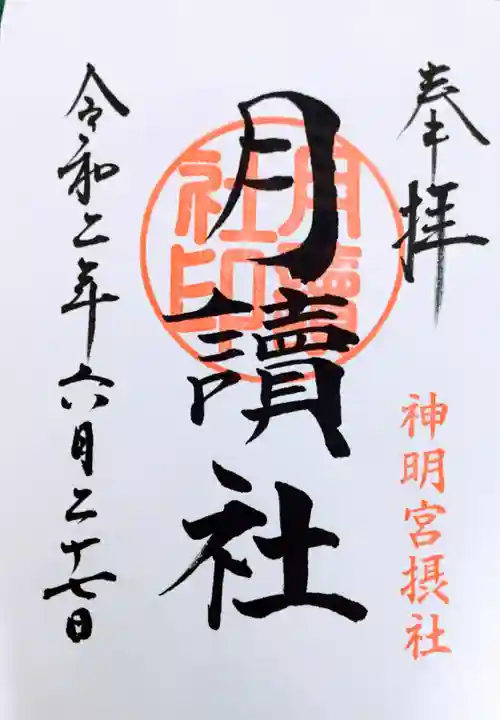 奉拝
神明宮摂社
月讀社
月讀
社印
令和二年六月二十七日